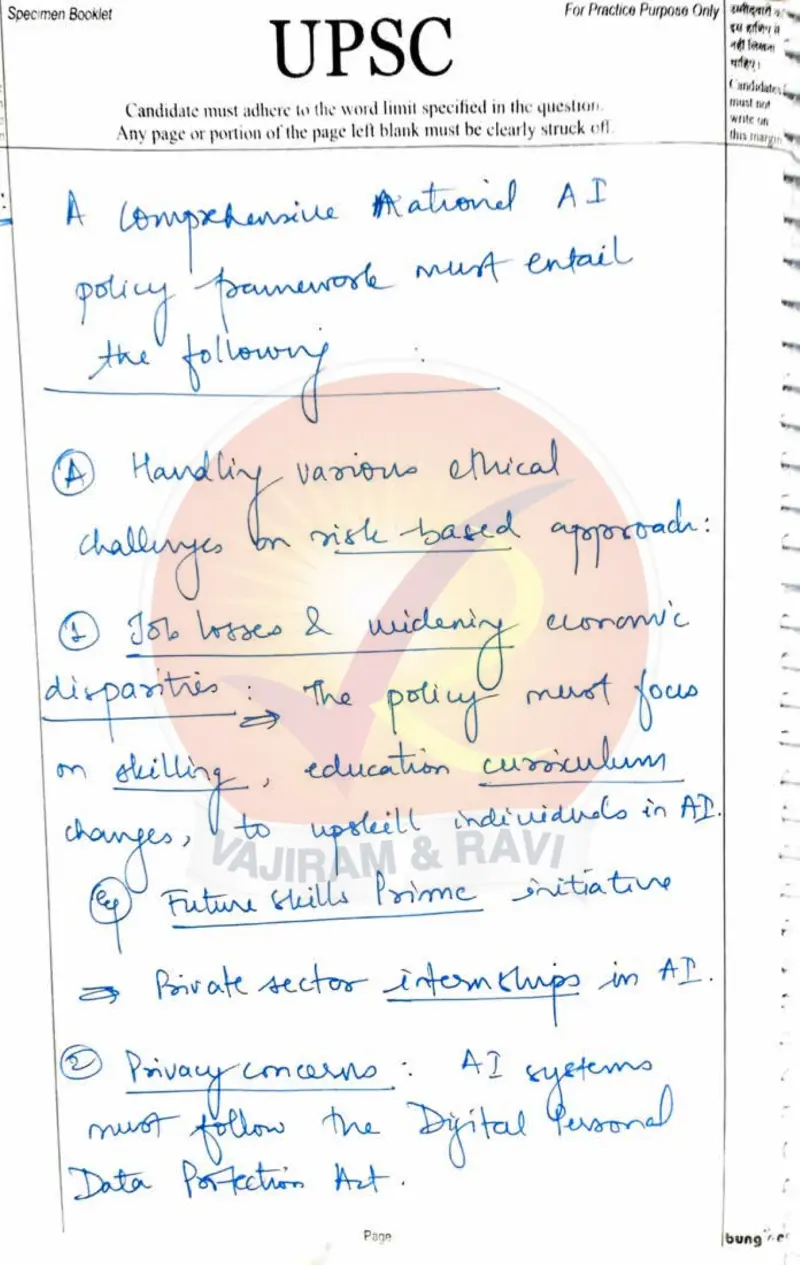 Specimen Booklet
For Practice Purpose Only
UPSC
Candidate must adhere to the word limit specified in the question.
Any page or portion of the page left blank must be clearly struck off.
उम्मीदवारों को
इस हाशिए में
नहीं लिखना
चाहिए।
Candidates
must not
write on
this margin
A comprehensive National AI
policy framework must entail
the following :
(A) Handling various ethical
challenges on risk-based approach:
(1) Job losses & widening economic
disparities : ⇒ The policy must focus
on skilling, education curriculum
changes, to upskill individuals in AI.
(eg) Future Skills Prime initiative
⇒ Private sector internships in AI.
(2) Privacy concerns : AI systems
must follow the Digital Personal
Data Protection Act.
VAJIRAM & RAVI
Page